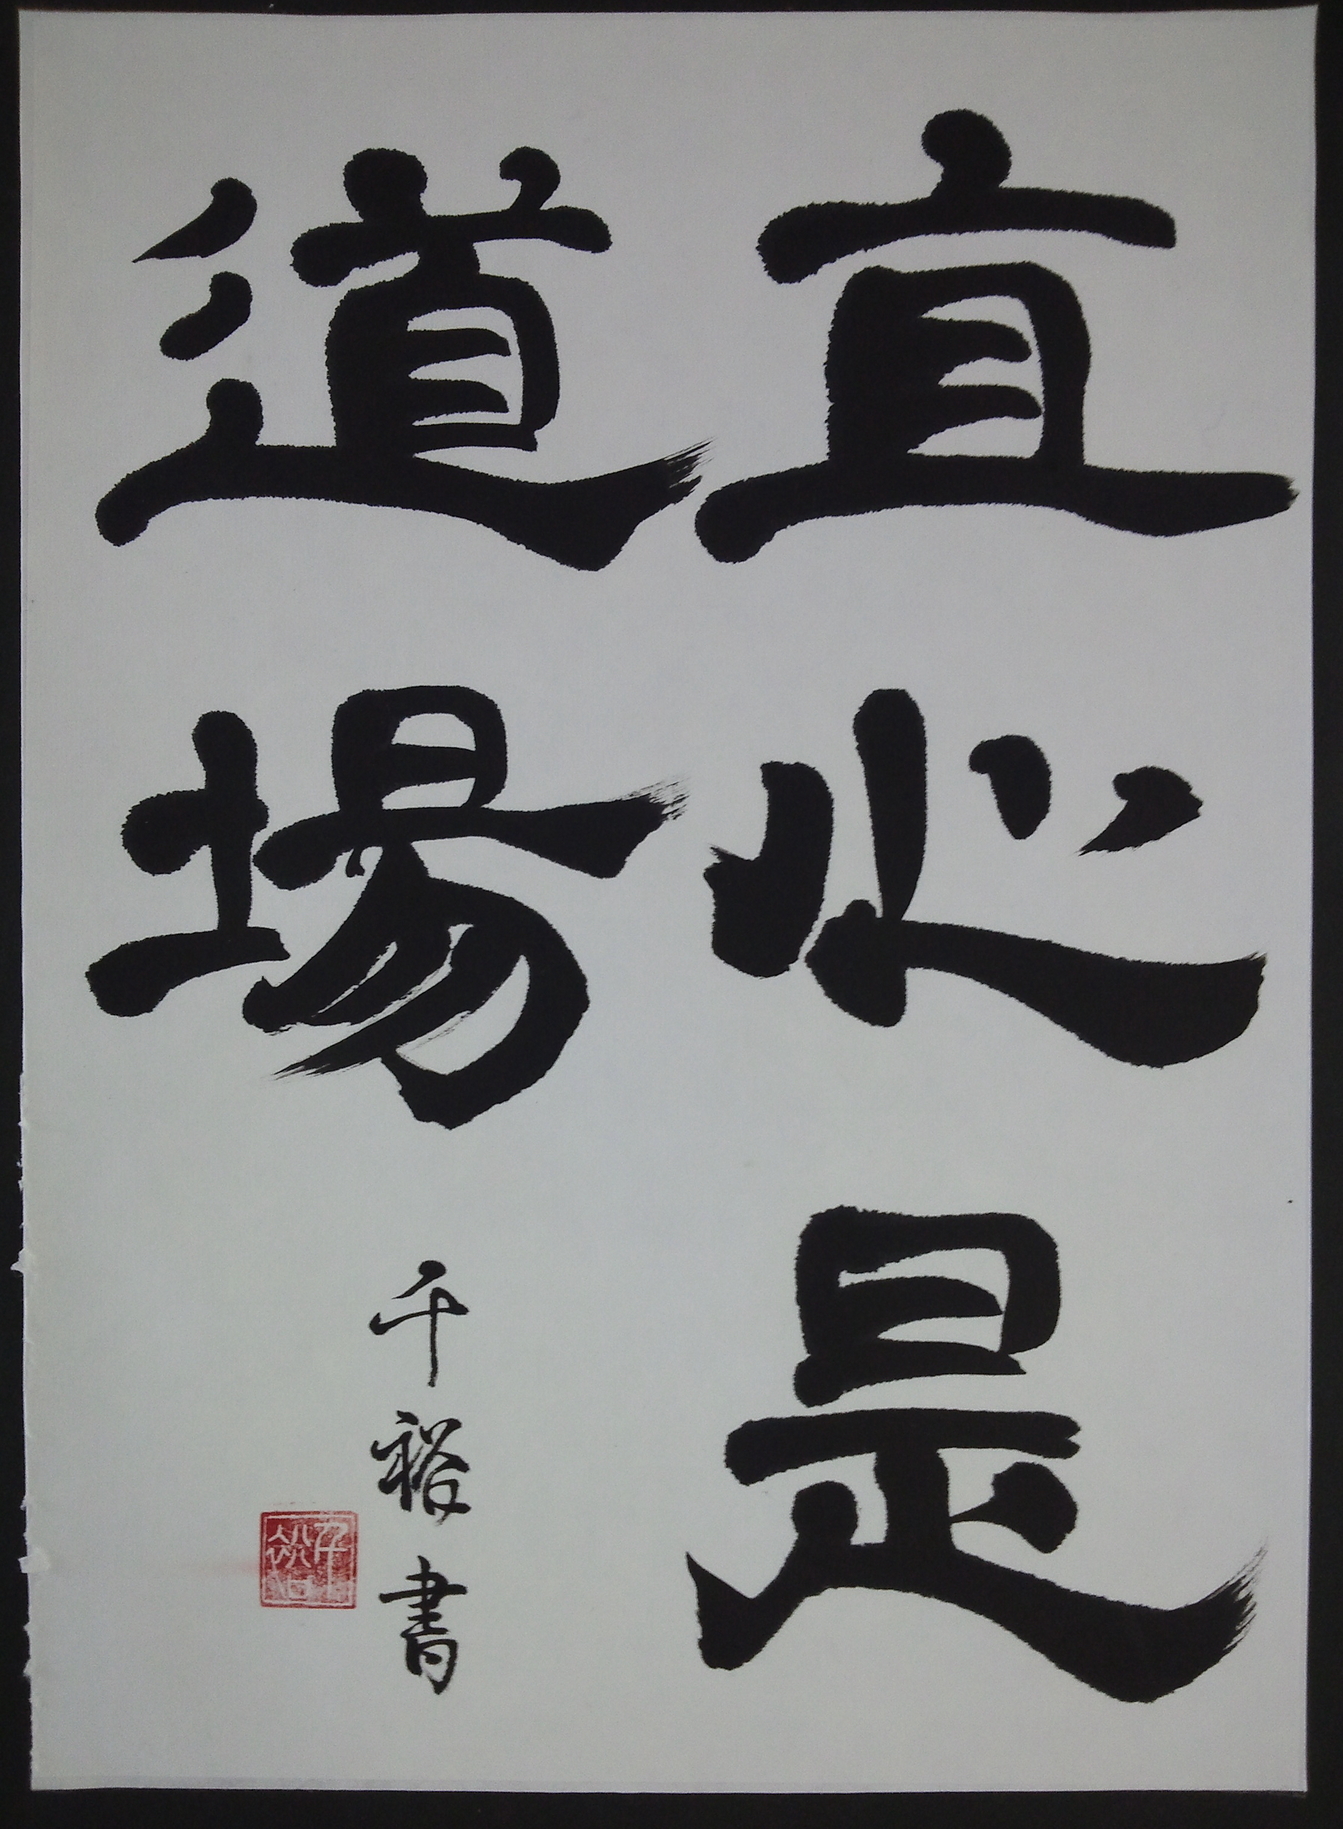 直心是
道場
千裕書
千裕